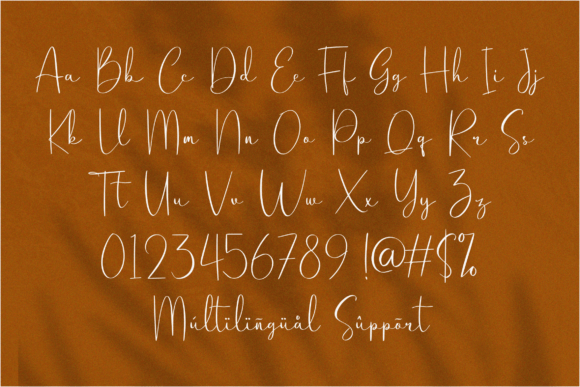 Aa Bb Cc Dd Ee Ff Gg Hh Ii Jj
Kk Ll Mm Nn Oo Pp Qq Rr Ss
Tt Uu Vv Ww Xx Yy Zz
0123456789 !@#$%
Múltïlïñgüål Sûppōrt